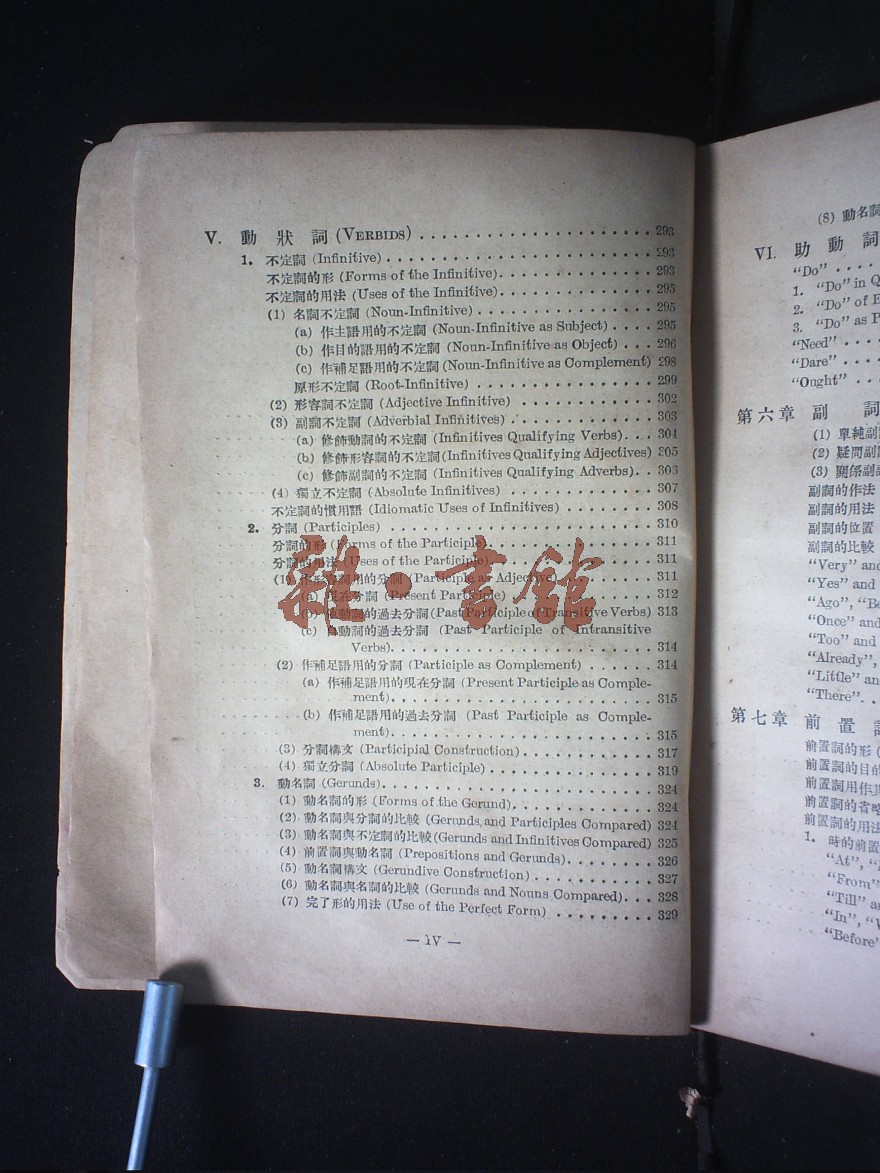 V. 動狀詞 (VERBIDS) ........................ 293
1. 不定詞 (Infinitive) ........................ 293
不定詞的形 (Forms of the Infinitive) ........................ 293
不定詞的用法 (Uses of the Infinitive) ........................ 295
(1) 名詞不定詞 (Noun-Infinitive) ........................ 295
(a) 作主語用的不定詞 (Noun-Infinitive as Subject) .... 295
(b) 作目的語用的不定詞 (Noun-Infinitive as Object) ... 296
(c) 作補足語用的不定詞 (Noun-Infinitive as Complement) 298
原形不定詞 (Root-Infinitive) ........................ 299
(2) 形容詞不定詞 (Adjective Infinitive) ........................ 302
(3) 副詞不定詞 (Adverbial Infinitives) ........................ 303
(a) 修飾動詞的不定詞 (Infinitives Qualifying Verbs) ... 304
(b) 修飾形容詞的不定詞 (Infinitives Qualifying Adjectives) 305
(c) 修飾副詞的不定詞 (Infinitives Qualifying Adverbs) .. 303
(4) 獨立不定詞 (Absolute Infinitives) ........................ 307
不定詞的慣用語 (Idiomatic Uses of Infinitives) ........................ 308
2. 分詞 (Participles) ........................ 310
分詞的形 (Forms of the Participle) ........................ 311
分詞的用法 (Uses of the Participle) ........................ 311
(1) 作形容詞用的分詞 (Participle as Adjective) ........................ 311
(a) 現在分詞 (Present Participle) ........................ 312
(b) 他動詞的過去分詞 (Past Participle of Transitive Verbs) 313
(c) 自動詞的過去分詞 (Past Participle of Intransitive
Verbs) ........................ 314
(2) 作補足語用的分詞 (Participle as Complement) ....... 314
(a) 作補足語用的現在分詞 (Present Participle as Comple-
ment) ........................ 315
(b) 作補足語用的過去分詞 (Past Participle as Comple-
ment) ........................ 315
(3) 分詞構文 (Participial Construction) ........................ 317
(4) 獨立分詞 (Absolute Participle) ........................ 319
3. 動名詞 (Gerunds) ........................ 324
(1) 動名詞的形 (Forms of the Gerund) ........................ 324
(2) 動名詞與分詞的比較 (Gerunds and Participles Compared) 324
(3) 動名詞與不定詞的比較 (Gerunds and Infinitives Compared) 325
(4) 前置詞與動名詞 (Prepositions and Gerunds) ........ 326
(5) 動名詞構文 (Gerundive Construction) ........................ 327
(6) 動名詞與名詞的比較 (Gerunds and Nouns Compared) ... 328
(7) 完了形的用法 (Use of the Perfect Form) ......... 329
— IV —
雜·書館
(8) 動名詞
VI. 助動詞
"Do" ....
1. "Do" in Q
2. "Do" of E
3. "Do" as P
"Need" ....
"Dare" ....
"Ought" ...
第六章 副 詞
(1) 單純副
(2) 疑問副
(3) 關係副
副詞的作法
副詞的用法
副詞的位置
副詞的比較
"Very" and
"Yes" and
"Ago", "Be
"Once" and
"Too" and
"Already",
"Little" an
"There"..
第七章 前置
前置詞的形 (
前置詞的目的
前置詞用作
前置詞的省略
前置詞的用法
1. 時的前置
"At",
"From"
"Till" a
"In",
"Before"